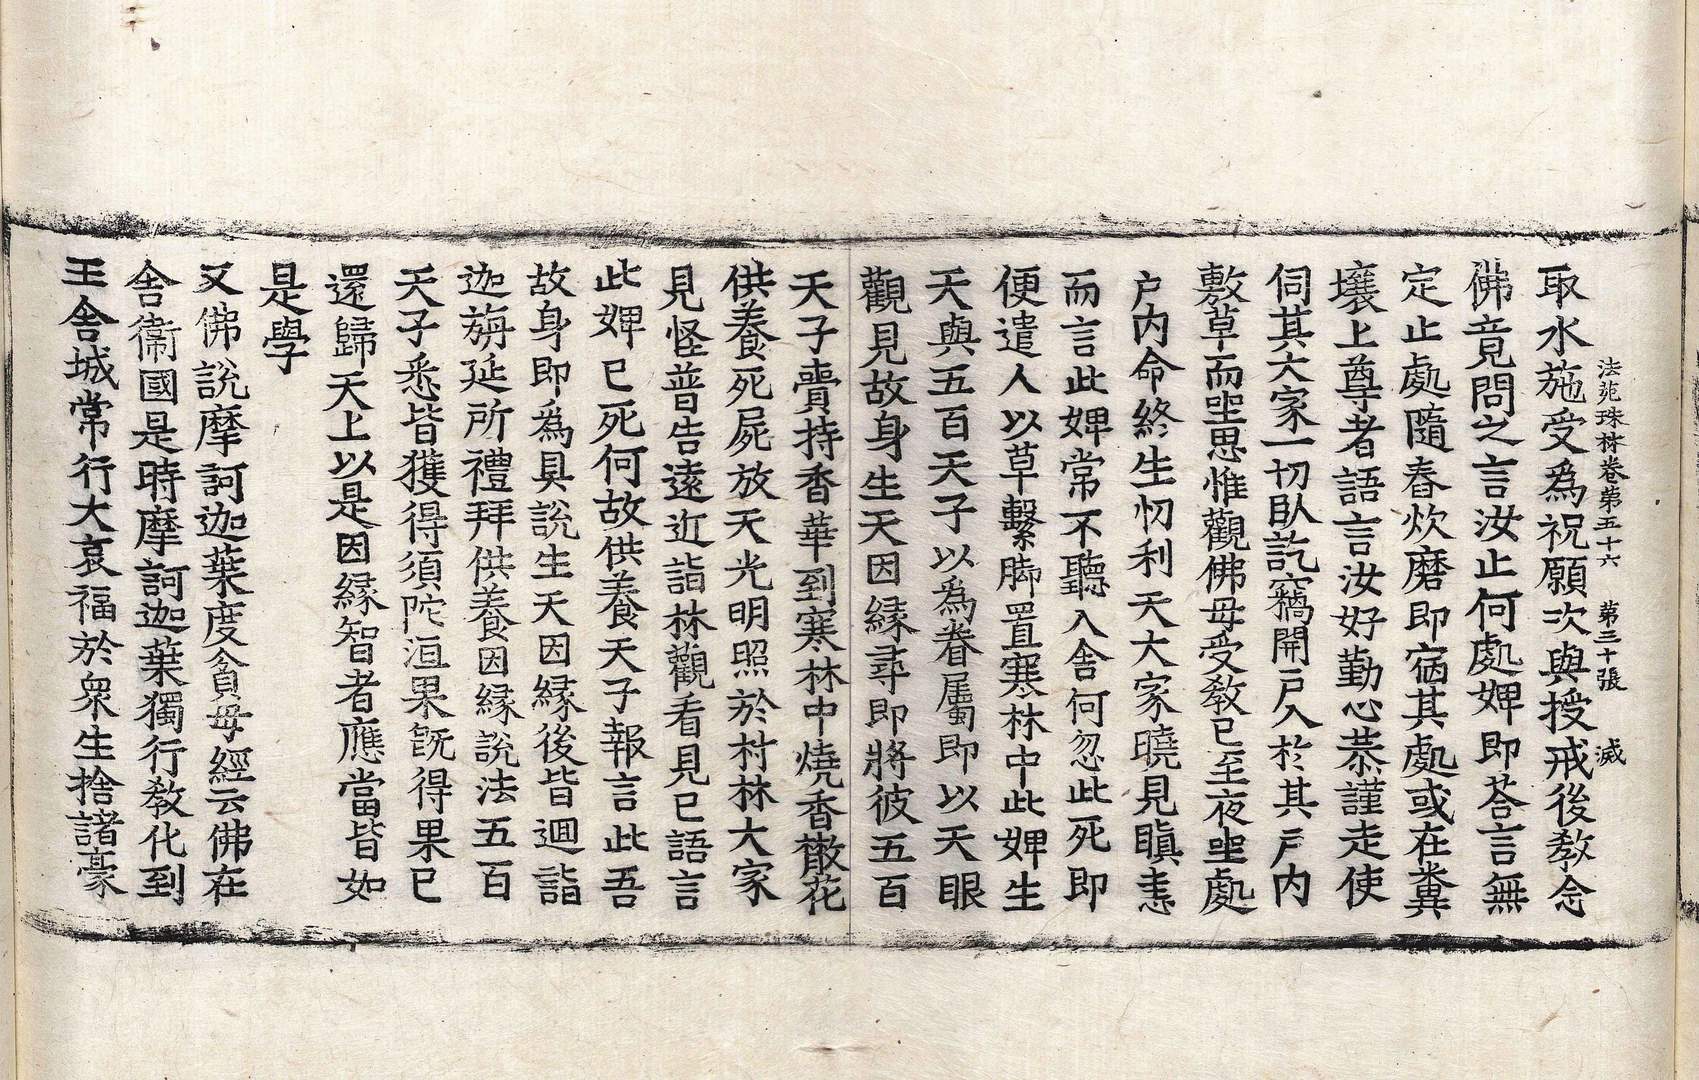 法苑珠林卷第五十六 第三十張 滅
取水施受爲祝願次與授戒後教念
佛竟問之言汝止何處婢即荅言無
定止處隨舂炊磨即宿其處或在糞
壤上尊者語言汝好勤心恭謹走使
伺其大家一切臥訖竊開戶入於其戶内
敷草而坐思惟觀佛母受教已至夜坐處
戶内命終生忉利天大家曉見瞋恚
而言此婢常不聽入舍何忽此死即
便遣人以草繫脚置寒林中此婢生
天與五百天子以為眷屬即以天眼
觀見故身生天因縁尋即將彼五百
天子賷持香華到寒林中燒香散花
供養死屍放天光明照於村林大家
見怪普告遠近詣林觀看見已語言
此婢已死何故供養天子報言此吾
故身即為具說生天因縁後皆迴詣
迦旃延所禮拜供養因縁說法五百
天子悉皆獲得須陀洹果既得果已
還歸天上以是因縁智者應當皆如
是學
又佛說摩訶迦葉度貧母經云佛在
舍衞國是時摩訶迦葉獨行教化到
王舍城常行大哀福於衆生捨諸豪